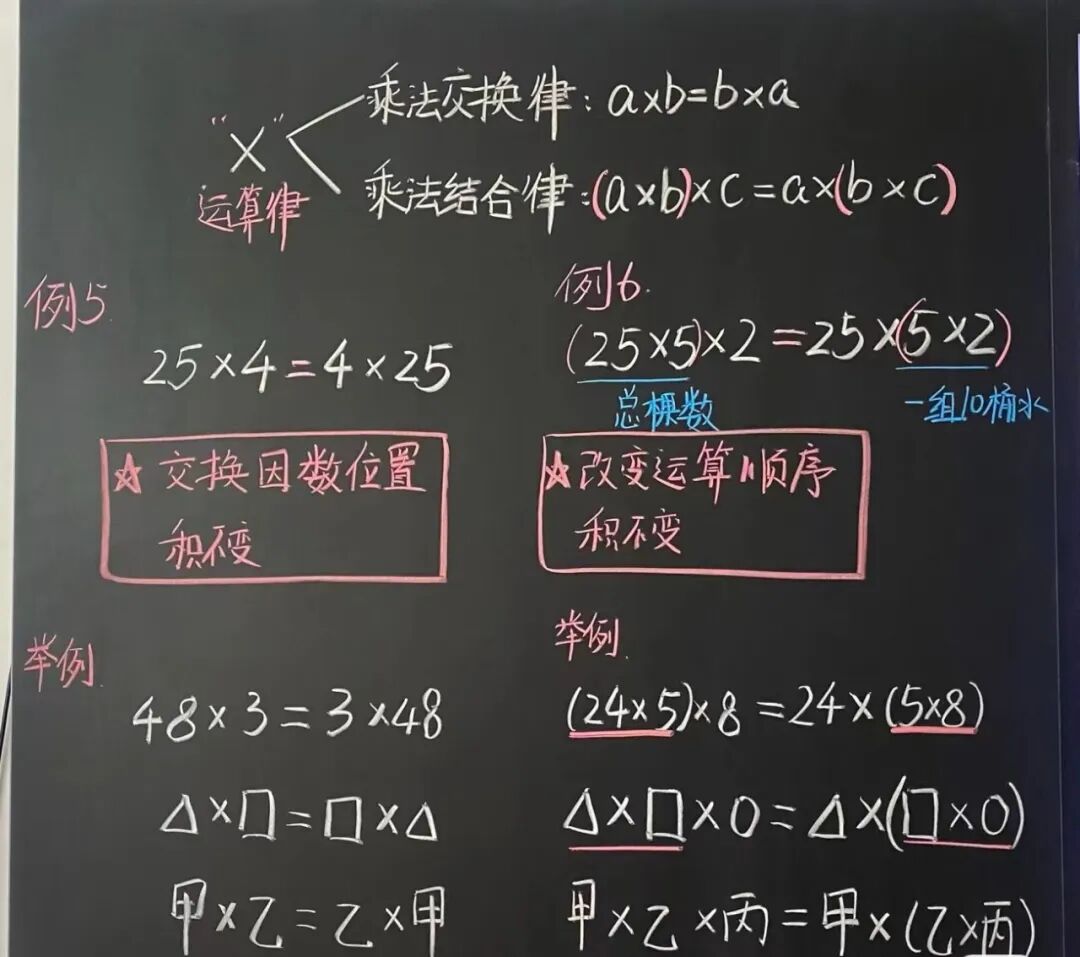 "×"运算律
乘法交换律：a×b=b×a
乘法结合律：(a×b)×c=a×(b×c)
例5.
25×4=4×25
★交换因数位置
积不变
举例.
48×3=3×48
△×□=□×△
甲×乙=乙×甲
例6.
(25×5)×2=25×(5×2)
总棵数 一组10桶水
★改变运算顺序
积不变
举例.
(24×5)×8=24×(5×8)
△×□×○=△×(□×○)
甲×乙×丙=甲×(乙×丙)